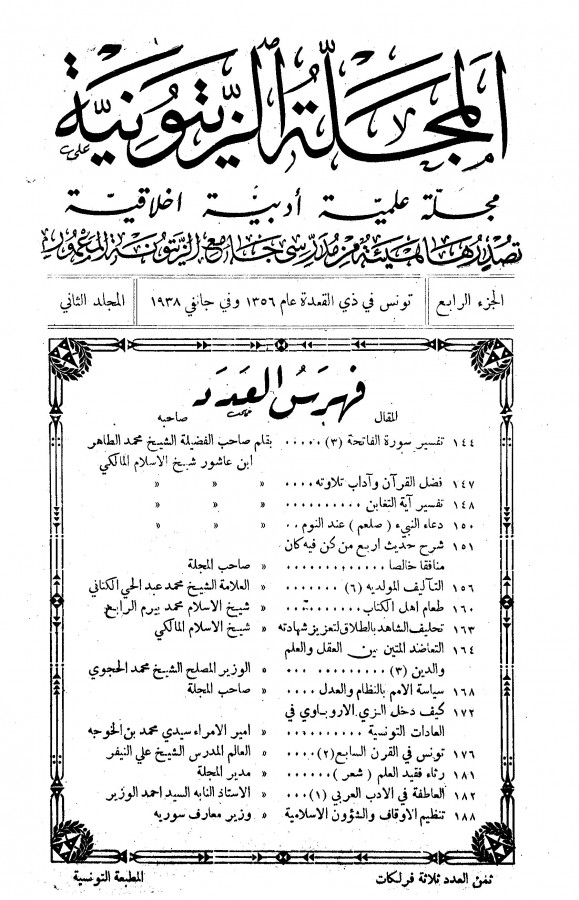 المجلة الزيتونية
مجلة علمية أدبية اخلاقية
تصدرها هيئة من مدرسي جامع الزيتونة المعمور
الجزء الرابع
تونس في ذي القعدة عام ١٣٥٦ وفي جانفي ١٩٣٨
المجلد الثاني
فهرس العدد
المقال صاحبه
١٤٤ تفسير سورة الفاتحة (٣) ..... بقلم صاحب الفضيلة الشيخ محمد الطاهر
ابن عاشور شيخ الاسلام المالكي
١٤٧ فضل القرآن وآداب تلاوته .... » » »
١٤٨ تفسير آية التغابن .......... » » »
١٥٠ دعاء النبيء (صلعم) عند النوم .. » » »
١٥١ شرح حديث اربع من كن فيه كان
منافقا خالصا ............. » صاحب المجلة
١٥٦ التآليف المولديه (٦) ....... » العلامة الشيخ محمد عبد الحي الكتاني
١٦٠ طعام اهل الكتاب .......... » شيخ الاسلام محمد بيرم الرابع
١٦٣ تحليف الشاهد بالطلاق لتعزيز شهادته » شيخ الاسلام المالكي
١٦٤ التعاضد المتين بين العقل والعلم
والدين (٣) ............ » الوزير المصلح الشيخ محمد الحجوي
١٦٨ سياسة الامم بالنظام والعدل .... » صاحب المجلة
١٧٢ كيف دخل الزي الاروباوي في
العادات التونسية .......... » امير الامراء سيدي محمد بن الخوجه
١٧٦ تونس في القرن السابع (٢) .... » العالم المدرس الشيخ علي النيفر
١٨١ رثاء فقيد العلم (شعر) ...... » مدير المجلة
١٨٢ العاطفة في الادب العربي (١) ... » الاستاذ النابه السيد احمد الوزير
١٨٨ تنظيم الاوقاف والشؤون الاسلامية » وزير معارف سوريه
ثمن العدد ثلاثة فرنكات
المطبعة التونسية